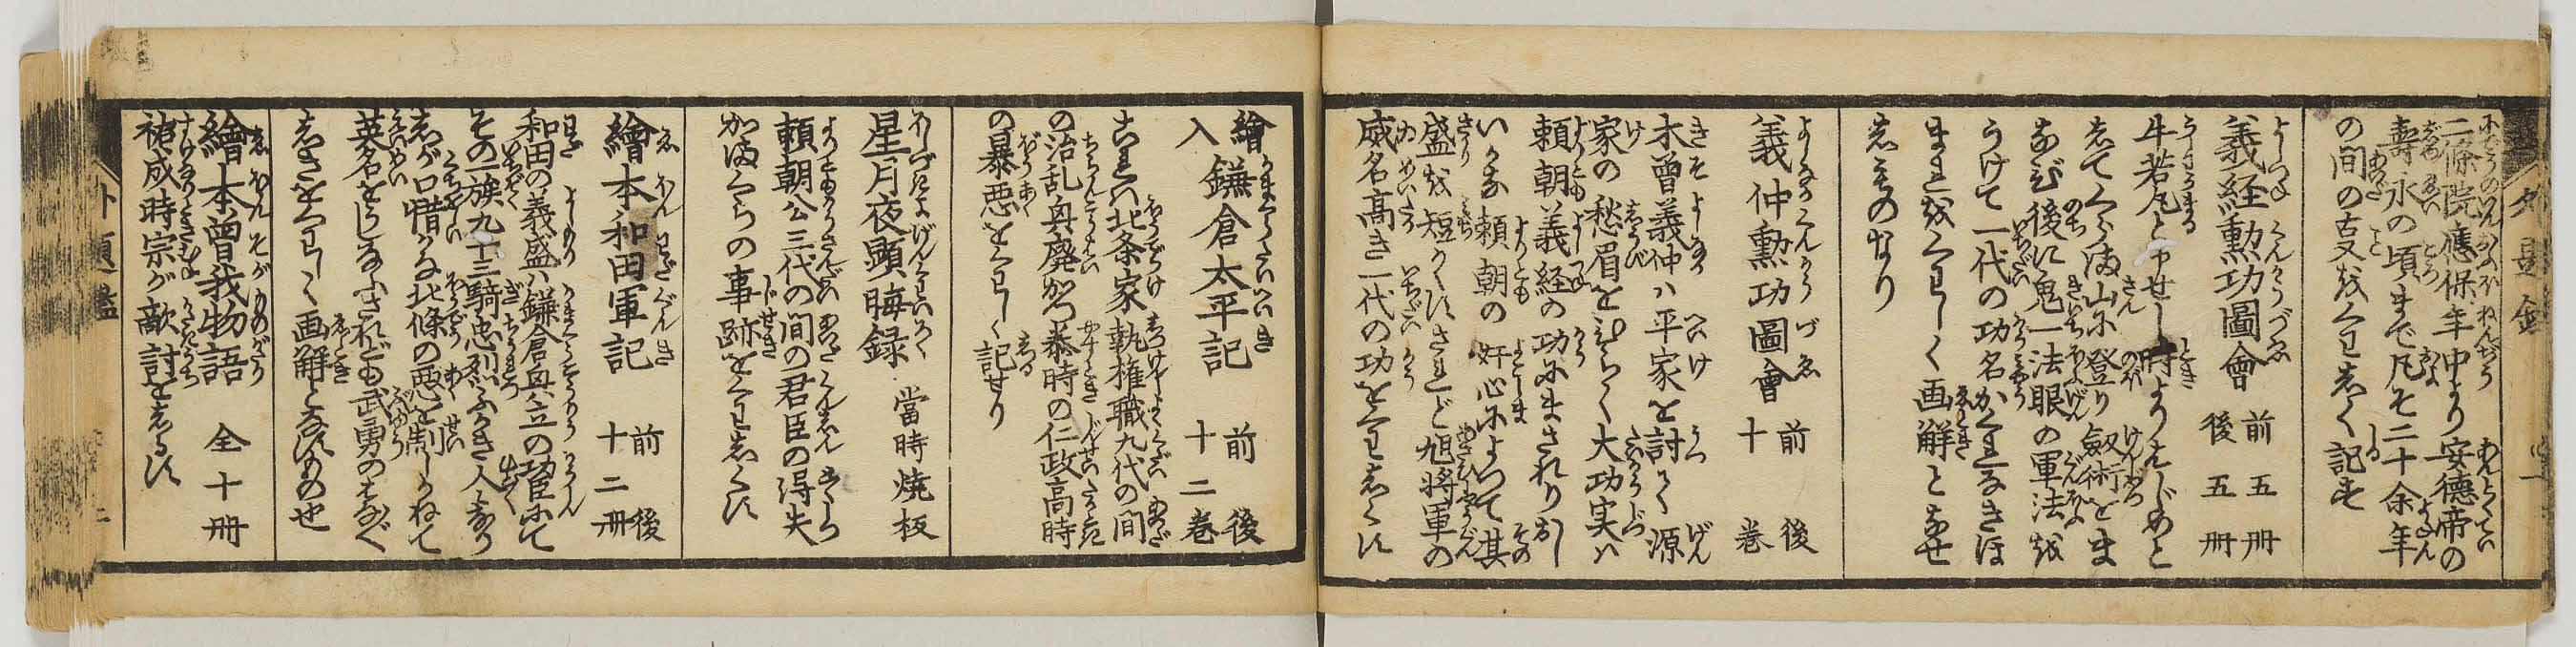 二條院應保年中より安徳帝の
壽永の頃まで凡そ二十余年
の間の古叓をくわしく記す
義経勲功圖會 前五冊 後五冊
牛若丸と申せし時よりはじめと
してくらま山に登り劔術をま
なび後に鬼一法眼の軍法を
うけて一代の功名かくれなきほ
まれをくわしく画解となせ
しものなり
義仲勲功圖會 前後十巻
木曽義仲ハ平家を討て源
家の愁眉をひらく大功実ハ
頼朝義経の功にまされり別し
いかな頼朝の奸心によつて其
盛を短くすされど旭将軍の
威名高き一代の功をくわしくす
繪入鎌倉太平記 前後十二巻
これハ北条家執権職九代の間
の治乱興廃かつ泰時の仁政高時
の暴悪をくわしく記せり
星月夜顕晦録 當時焼板
頼朝公三代の間の君臣の得失
かまくらの事跡をくわしくす
繪本和田軍記 前後十二冊
和田の義盛ハ鎌倉興立の功臣にて
その一族九十三騎忠烈ふかき人々なり
しが口惜かな北條の悪を制しかねて
英名をうしなふされども武勇のはなぐ
しきをくわしく画解となすもの也
繪本曽我物語 全十冊
祐成時宗が敵討をしるす